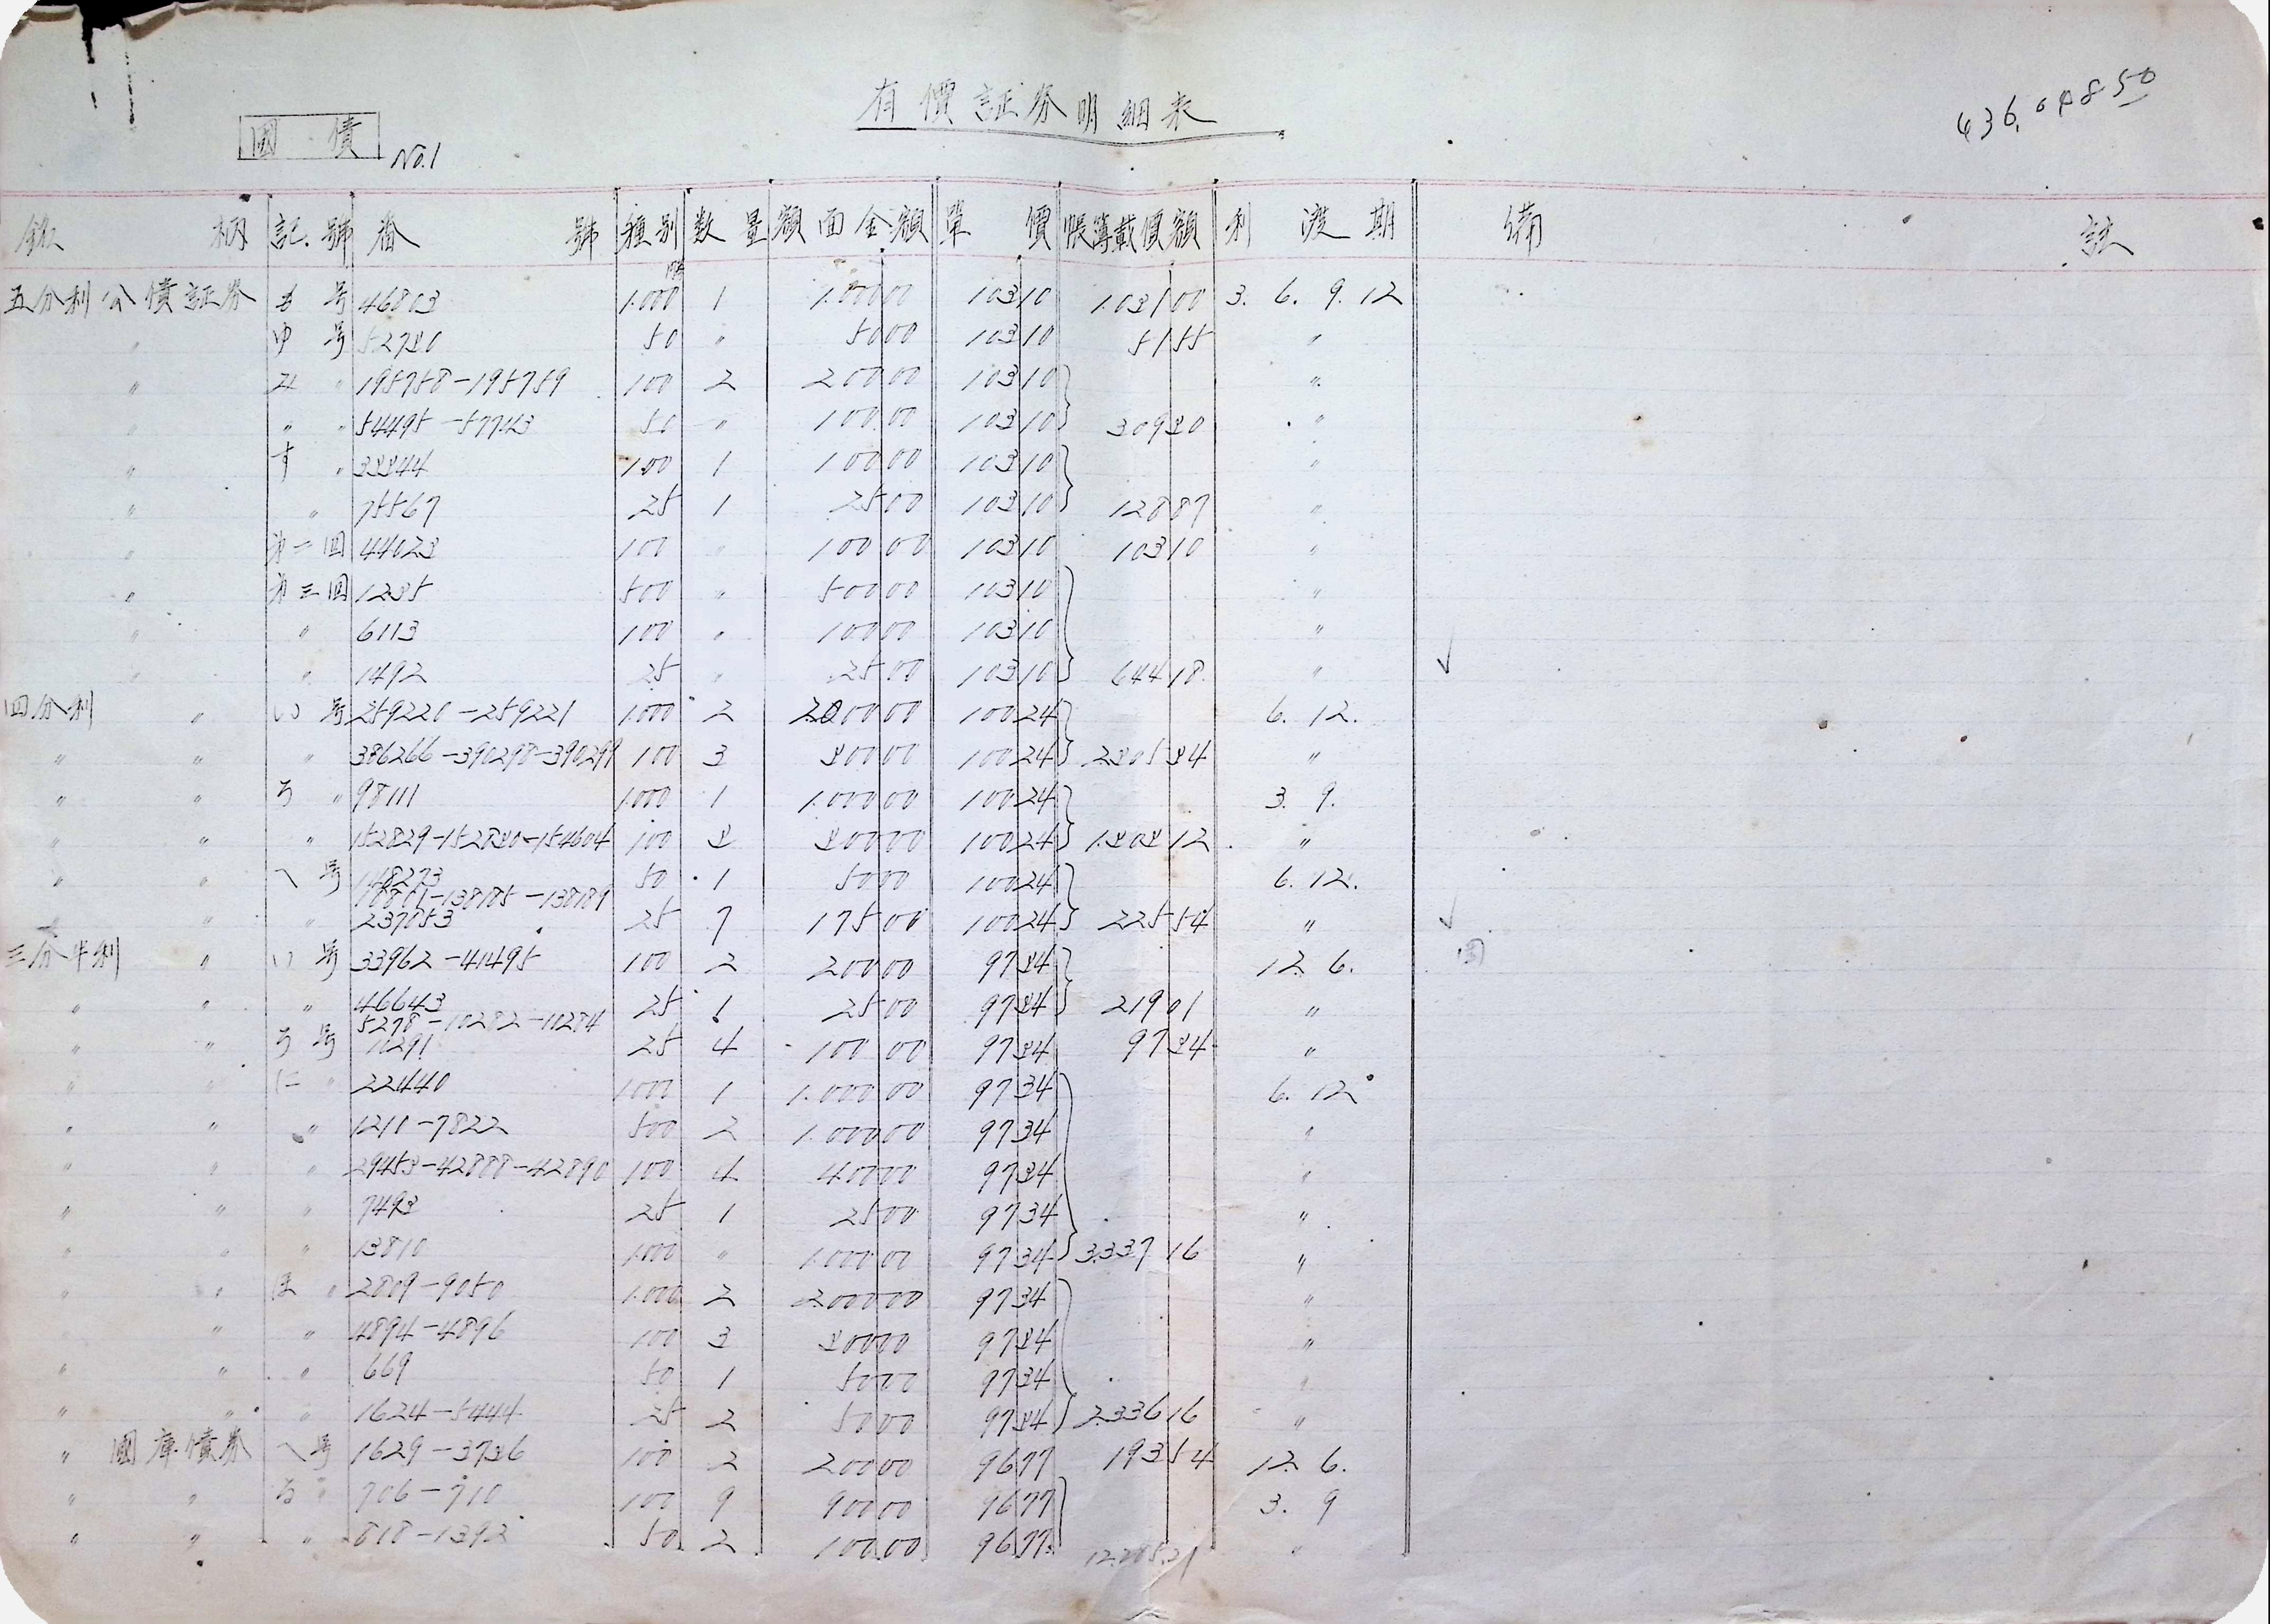 有價証券明細表
436,048 50
國債 No.1
銘柄 記號 番號 種別 数量 額面金額 單價 帳簿載價額 利渡期 備註
五分利公債証券 号 46803 1.000 1 1.000 00 103 10 1.031 00 3. 6. 9. 12
〃 ゆ号 52730 50 〃 50 00 103 10 51 55 〃
〃 〃 195758-195759 100 2 200 00 103 10 〃
〃 〃 〃 54495-57743 50 〃 100 00 103 10 309 30 〃
〃 す 〃 33344 100 1 100 00 103 10 〃
〃 〃 75567 25 1 25 00 103 10 128 87 〃
〃 第一回 44023 100 〃 100 00 103 10 103 10 〃
〃 第三回 1235 500 〃 500 00 103 10 〃
〃 〃 6113 100 〃 100 00 103 10 〃
〃 〃 1492 25 〃 25 00 103 10 644 18 〃
四分利 〃 い号 259220-259221 1.000 2 2.000 00 100 24 6. 12.
〃 〃 〃 386266-390298-390299 100 3 300 00 100 24 2.305 34 〃
〃 〃 ろ 〃 98111 1.000 1 1.000 00 100 24 3. 9.
〃 〃 〃 152829-152830-154604 100 3 300 00 100 24 1.303 12 〃
〃 〃 へ号 148273 50 1 50 00 100 24 6. 12.
〃 〃 〃 138185-138189
237053 25 7 175 00 100 24 225 54 〃
三分半利 〃 い号 33962-41495 100 2 200 00 97 34 12. 6.
〃 〃 〃 46643 25 1 25 00 97 34 219 01 〃
〃 〃 ろ号 5278-10282-10284
10291 25 4 100 00 97 34 97 34 〃
〃 〃 に 〃 22440 1000 1 1.000 00 97 34 6. 12
〃 〃 〃 1211-7822 500 2 1.000 00 97 34 〃
〃 〃 〃 29453-42888-42890 100 4 400 00 97 34 〃
〃 〃 〃 7493 25 1 25 00 97 34 〃
〃 〃 〃 13810 1.000 〃 1.000 00 97 34 3.337 16 〃
〃 〃 ほ 〃 2809-9050 1.000 2 2000 00 97 34 〃
〃 〃 4894-4896 100 3 300 00 97 34 〃
〃 〃 〃 669 50 1 50 00 97 34 〃
〃 〃 〃 1624-5444 25 2 50 00 97 34 2.336 16 〃
〃 國庫債券 へ号 1629-3736 100 2 200 00 96 77 193 54 12. 6.
〃 〃 〃 706-710 100 9 900 00 96 77 3. 9
〃 〃 〃 818-1392 50 2 100 00 96 77 〃